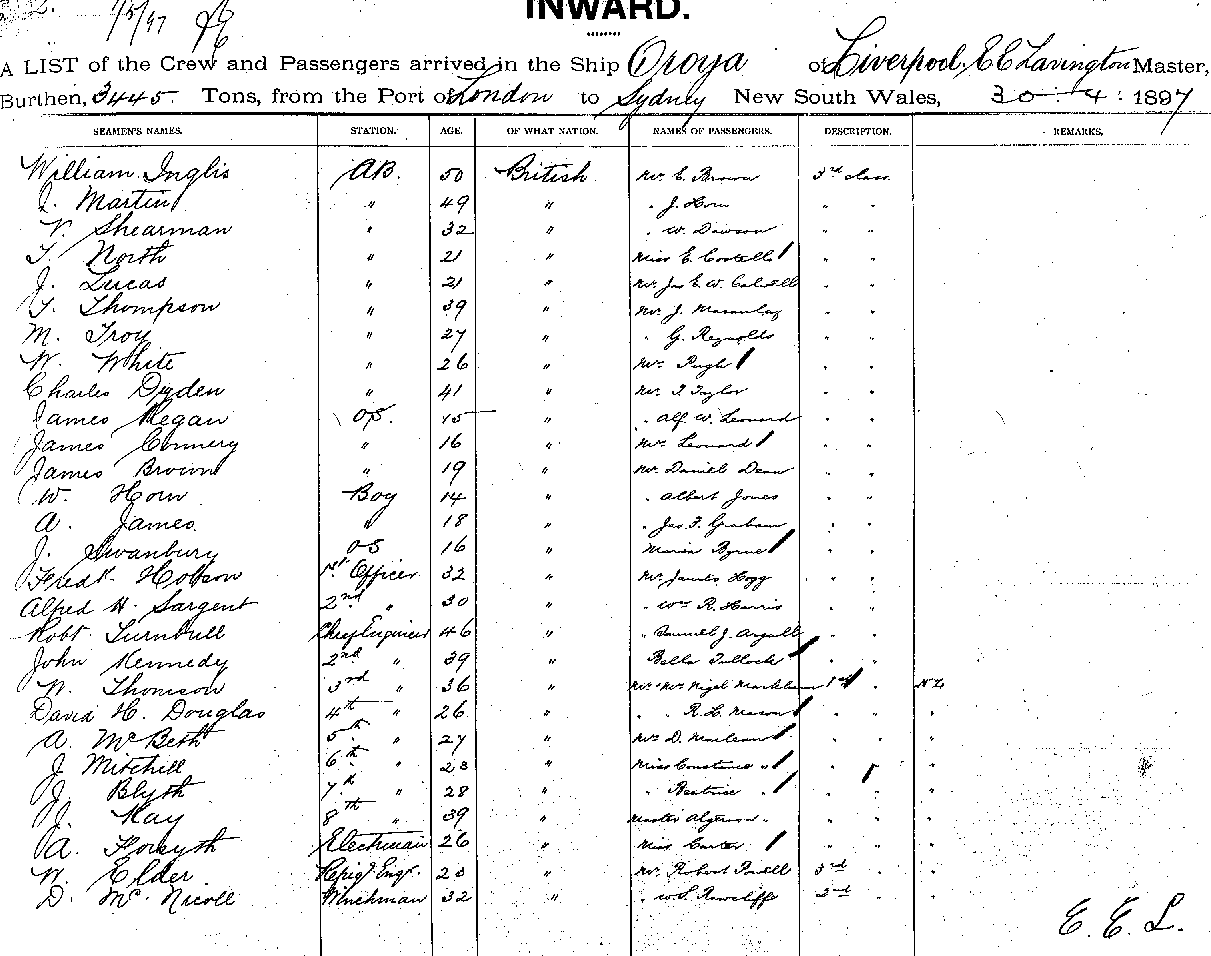 INWARD.
1/5/97
A LIST of the Crew and Passengers arrived in the Ship Oroya of Liverpool, E E Lavington Master,
Burthen, 3445 Tons, from the Port of London to Sydney New South Wales, 30 : 4 : 1897
SEAMEN'S NAMES. STATION. AGE. OF WHAT NATION. NAMES OF PASSENGERS. DESCRIPTION. REMARKS.
William Inglis AB. 50 British Mr. E. Brown 3rd class
J. Martin " 49 " " J. Horn " "
W. Shearman " 32 " " W. Dawson " "
T. North " 21 " Miss E. Costello " "
J. Lucas " 21 " Mr. Jas E. W. " "
T. Thompson " 39 " Mr. J. Macaulay " "
M. Troy " 27 " " G. Reynolds " "
W. White " 26 " Mrs Pugh " "
Charles Ogden " 41 " Mr. T. Taylor " "
James Regan OS. 15 " " Alf. W. Leonard " "
James Connery " 16 " Mrs Leonard " "
James Brown " 19 " Mr. Daniel Dean " "
W. Horn Boy 14 " " Albert Jones " "
A. James " 18 " " Jas. F. Graham " "
J. Swanbury OS 16 " Maria Byrne " "
Fredk. Hobson 1st Officer 32 " Mr. James Hogg " "
Alfred H. Sargent 2nd " 30 " " Wm R. Harris " "
Robt. Turnbull Chief Engineer 46 " " Samuel J. Argall " "
John Kennedy 2nd " 39 " Bella Tulloch " "
W. Thomson 3rd " 36 " Mr. & Mrs Nigel Markham 1st " NZ
David H. Douglas 4th " 26 " " " R. H. Mason "
A. McBeth 5th " 27 " Mrs D. Maclean " " "
J. Mitchell 6th " 23 " Miss Constance " " "
J. Blyth 7th " 28 " " Beatrice " "
J. May 8th " 39 " Master Algernon " " "
A. Forsyth Electman 26 " Miss Carter " " "
W. Elder Refrigr Engr. 23 " Mr. Robert 3rd " "
D. McNicoll Winchman 32 " " W. S. Rawcliffe 2nd " "
E. E. L.